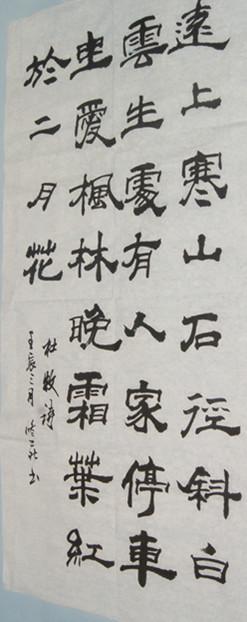 遠上寒山石徑斜白
雲生處有人家停車
坐愛楓林晚霜葉紅
於二月花
杜牧詩
壬辰三月